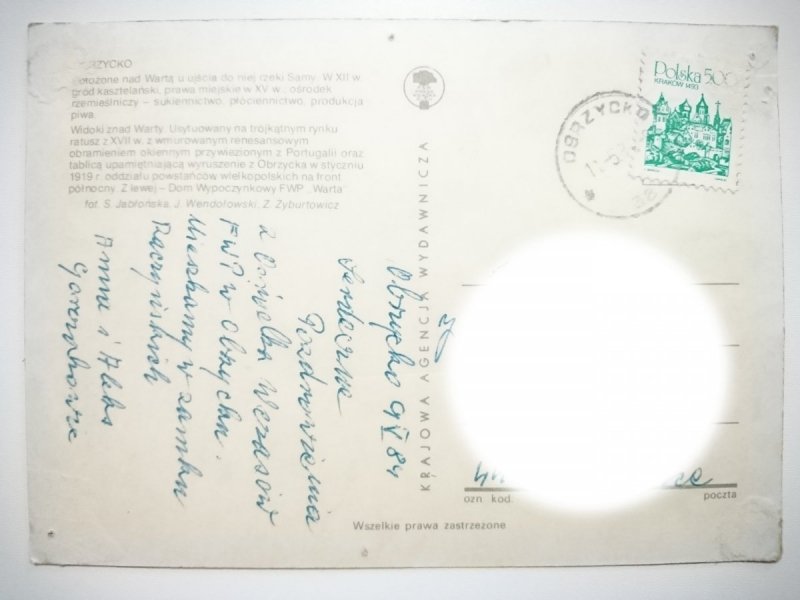 OBRZYCKO
Położone nad Wartą u ujścia do niej rzeki Samy. W XII w.
gród kasztelański, prawa miejskie w XV w.; ośrodek
rzemieślniczy – sukiennictwo, płóciennictwo, produkcja
piwa.
Widoki znad Warty. Usytuowany na trójkątnym rynku
ratusz z XVII w. z wmurowanym renesansowym
obramieniem okiennym przywiezionym z Portugalii oraz
tablicą upamiętniającą wyruszenie z Obrzycka w styczniu
1919 r. oddziału powstańców wielkopolskich na front
północny. Z lewej – Dom Wypoczynkowy FWP „Warta”
fot. S. Jabłońska, J. Wendołowski, Z. Żyburtowicz
Obrzycko 9 V 84
Serdeczne
Pozdrowienia
z Ośrodka Wczasów
FWP w Obrzycku.
Mieszkamy w zamku
Raczyńskich
Anna i
KRAJOWA AGENCJA WYDAWNICZA
Polska 5,00
KRAKÓW 1493
OBRZYCKO
ozn. kod.
poczta
Wszelkie prawa zastrzeżone